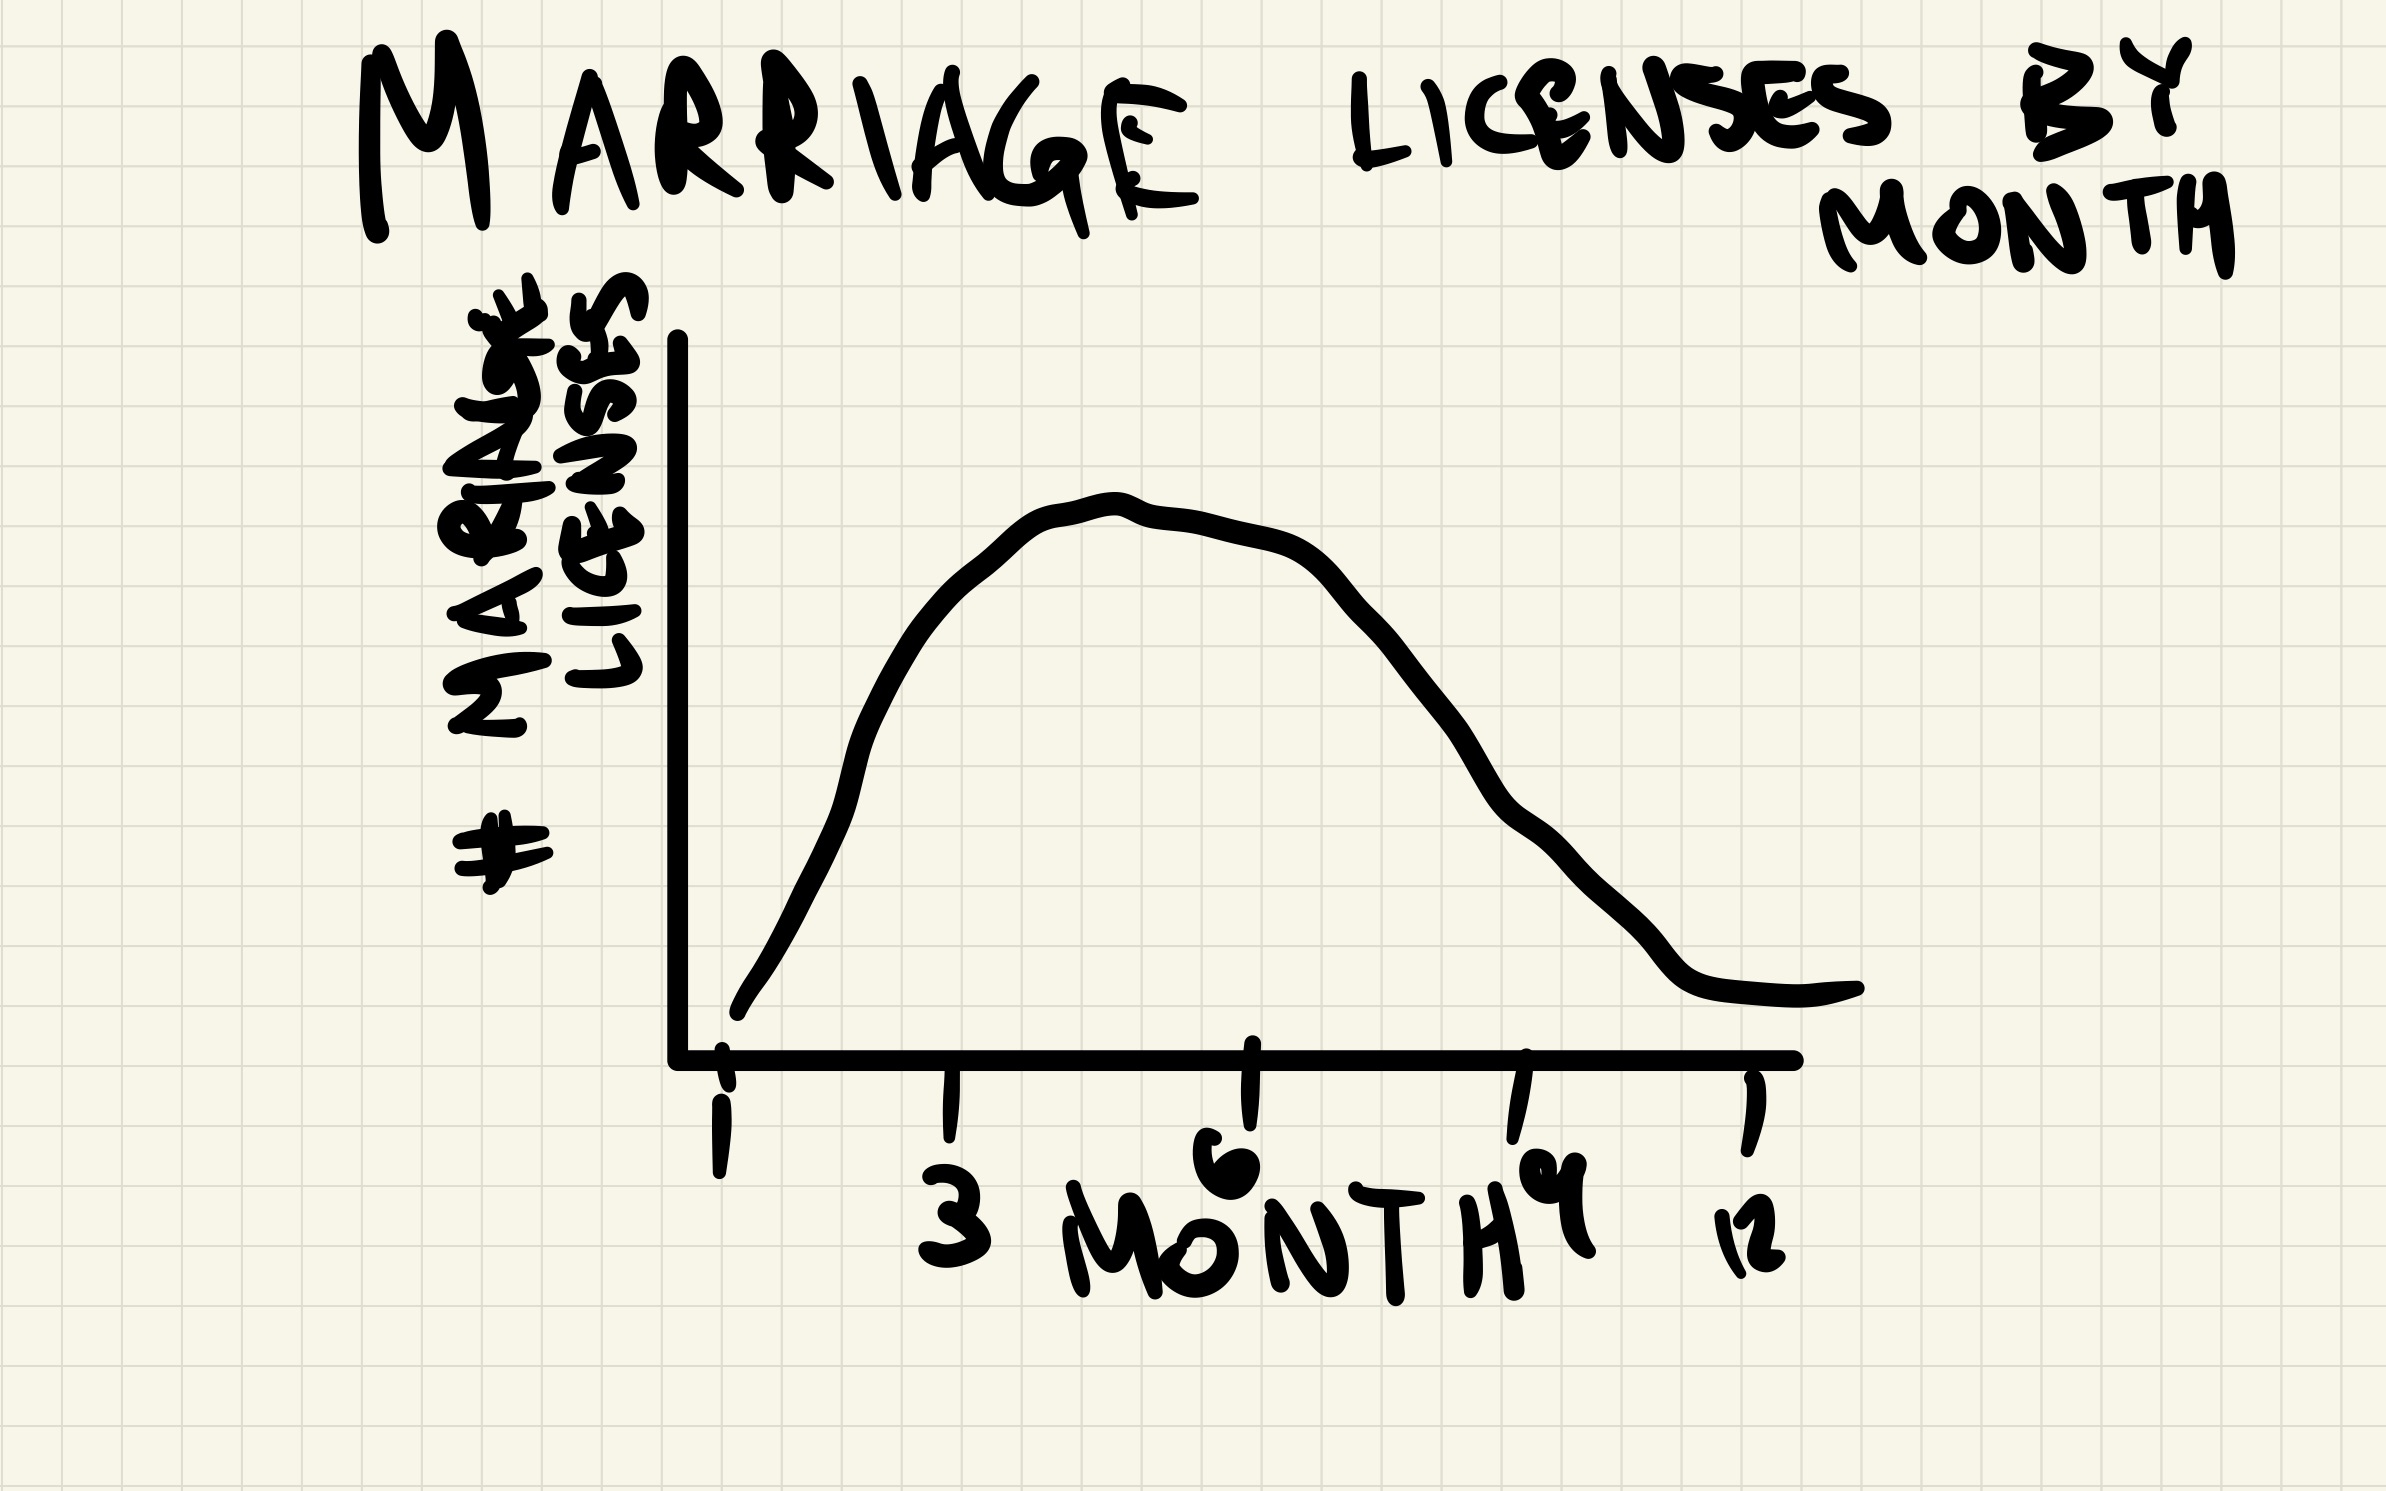 MARRIAGE LICENSES BY
MONTH
# MARRIAGE
LICENSES
1
3
6
9
12
MONTH